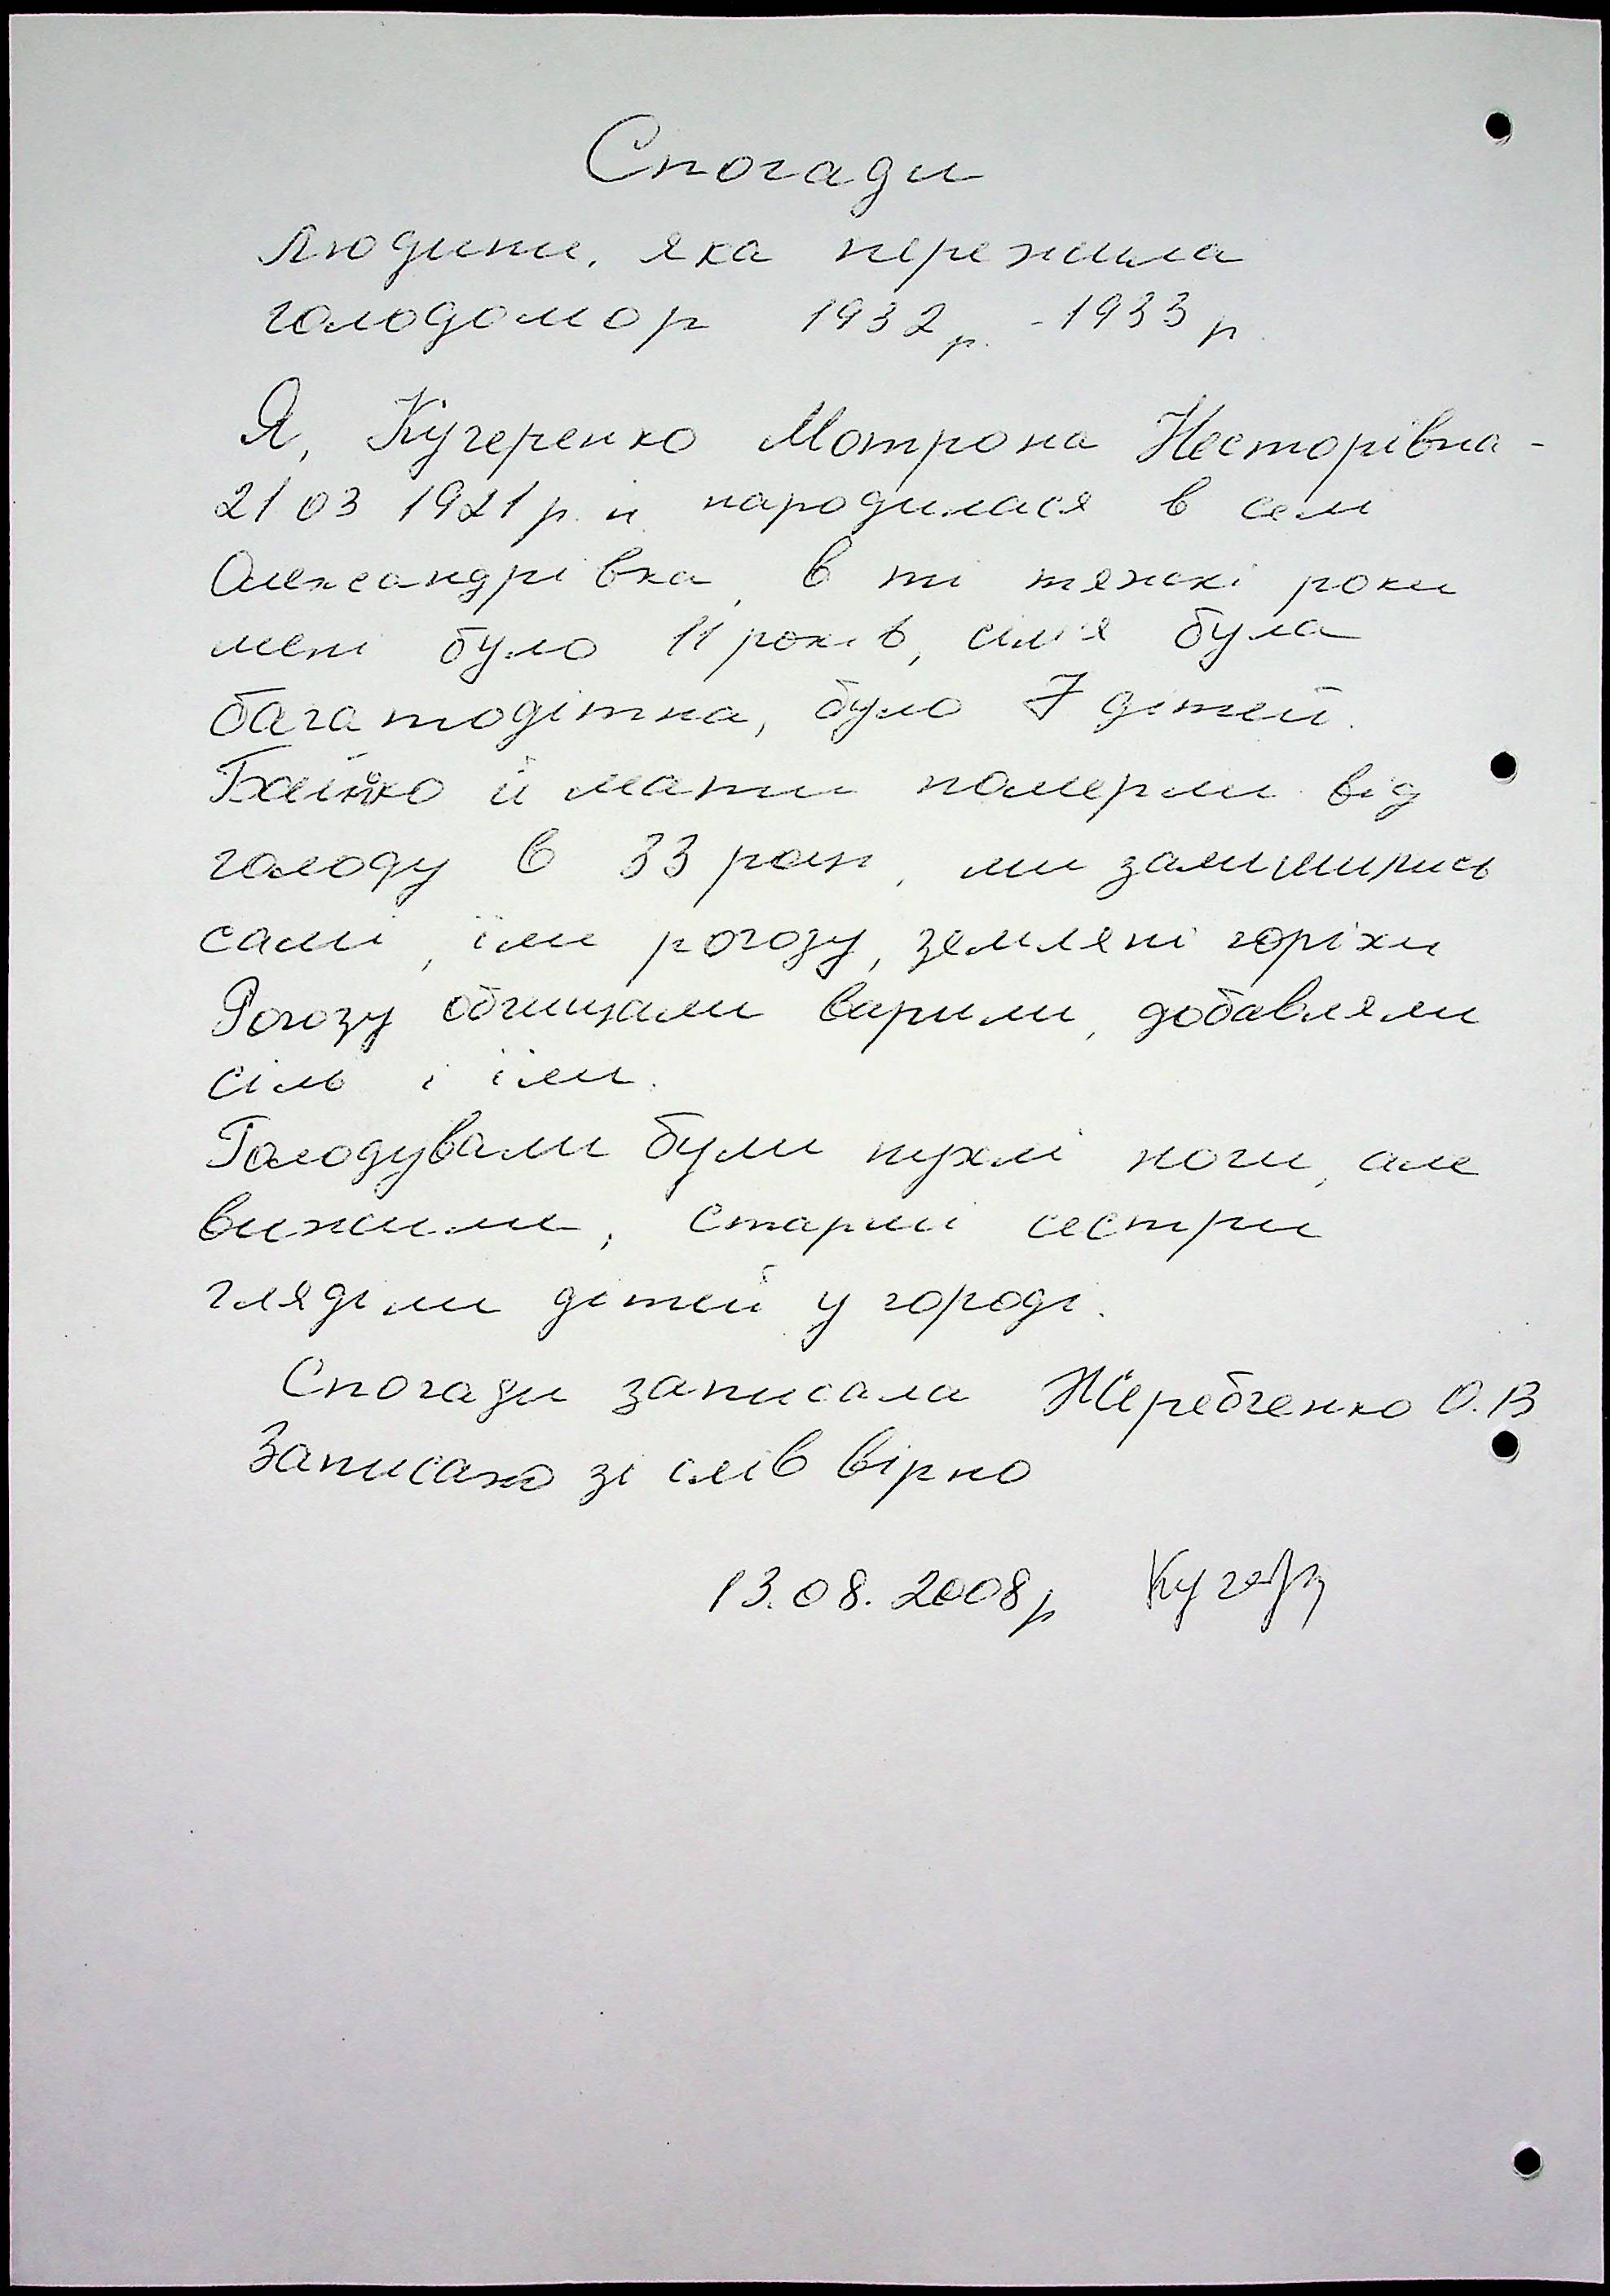 Спогади
людини, яка пережила
голодомор 1932 р. - 1933 р.
Я, Кучеренко Мотрона Несторівна -
21 03 1921 р. н. народилася в селі
Олександрівка, в ті тяжкі роки
мені було 11 років, сім'я була
багатодітна, було 7 дітей.
Батько й мати померли від
голоду в 33 році, ми залишились
самі, їли рогозу, земляні горіхи
Рогозу обчищали варили, добавляли
сіль і їли.
Голодували були пухлі ноги, але
вижили, старші сестри
гляділи дітей у городі.
Спогади записала Жеребченко О.В
Записано зі слів вірно
13.08.2008р